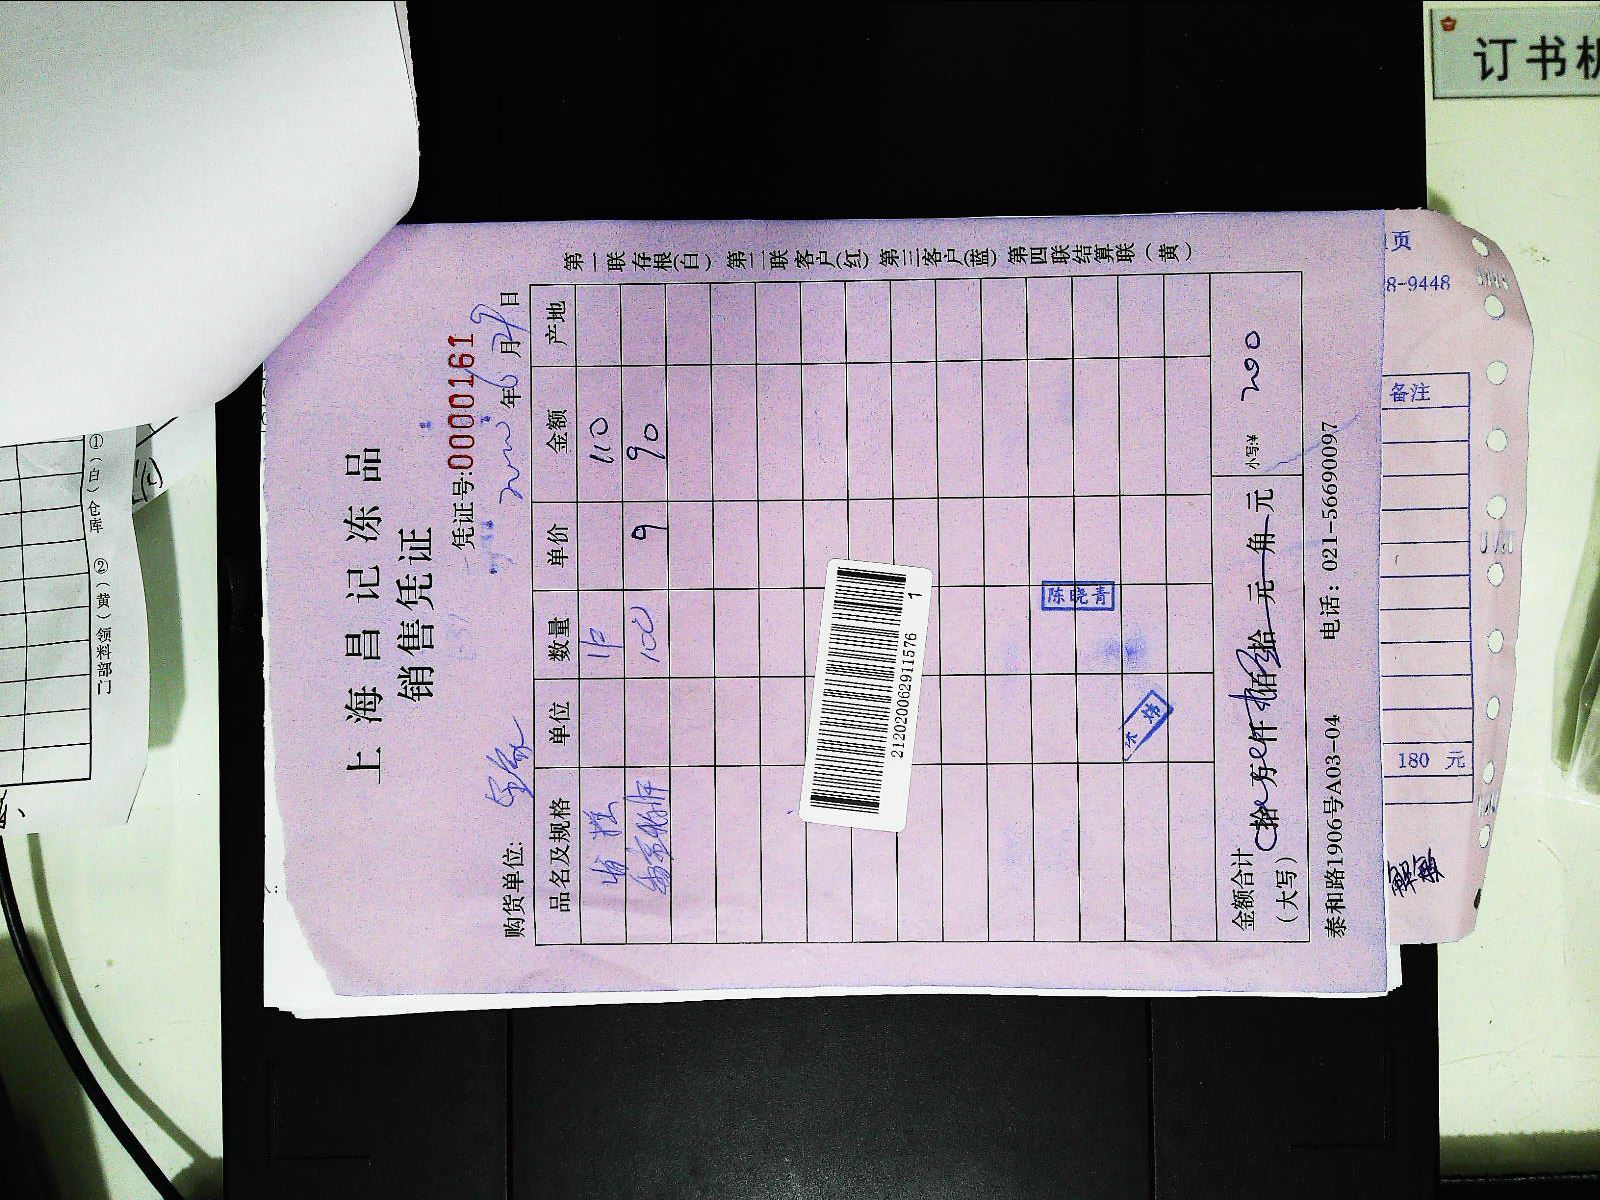 上海昌记冻品
销售凭证
凭证号:0000161
购货单位:
年6月29日
品名及规格 单位 数量 单价 金额 产地
110
100 9 90
第一联存根(白) 第二联客户(红) 第三客户(蓝) 第四联结算联(黄)
2120200629115761
陈晓青
金额合计
(大写)
拾 万 仟 佰 拾 元 角 元
小写:¥ 200
泰和路1906号A03-04 电话: 021-56690097
页
8-9448
备注
180 元
订书机
①(白)仓库 ②(黄)领料部门